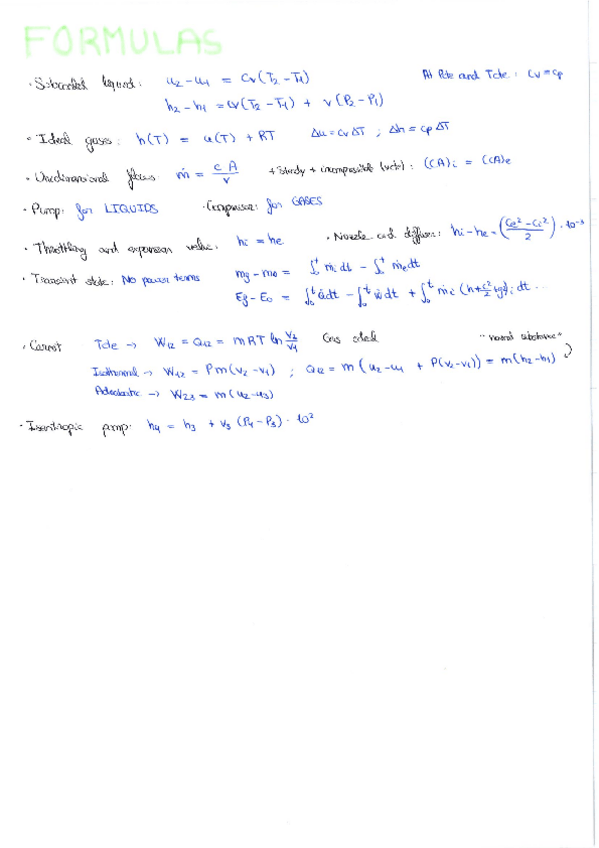 FORMULAS
· Subcooled liquid: u₂-u₁ = Cv(T₂-T₁) At Pcte and Tcte: Cv=Cp
h₂-h₁ = Cv(T₂-T₁) + v(P₂-P₁)
· Ideal gases: h(T) = u(T) + RT Δu = CvΔT ; Δh = CpΔT
· Unidimensional flow: ṁ = cA/v + Steady + incompressible: (CA)i = (CA)e
· Pump: for LIQUIDS · Compressor: for GASES
· Throttling and expansion valve: hi = he · Nozzle and diffuser: hi-he = ((Ce²-Ci²)/2)·10⁻³
· Transient state: No power terms mf - m0 = ∫₀ᵗ ṁi dt - ∫₀ᵗ ṁe dt
Ef - E0 = ∫₀ᵗ Q̇dt - ∫₀ᵗ Ẇdt + ∫₀ᵗ ṁi (h+c²/2+gz)i dt ...
· Carnot Tcte → W₁₂ = Q₁₂ = mRT ln V₂/V₁ Gas ideal "normal substance"
Isothermal → W₁₂ = Pm(v₂-v₁) ; Q₁₂ = m(u₂-u₁ + P(v₂-v₁)) = m(h₂-h₁)
Adiabatic → W₂₃ = m(u₂-u₃)
· Isentropic pump: h₄ = h₃ + v₃(P₄-P₃)·10²